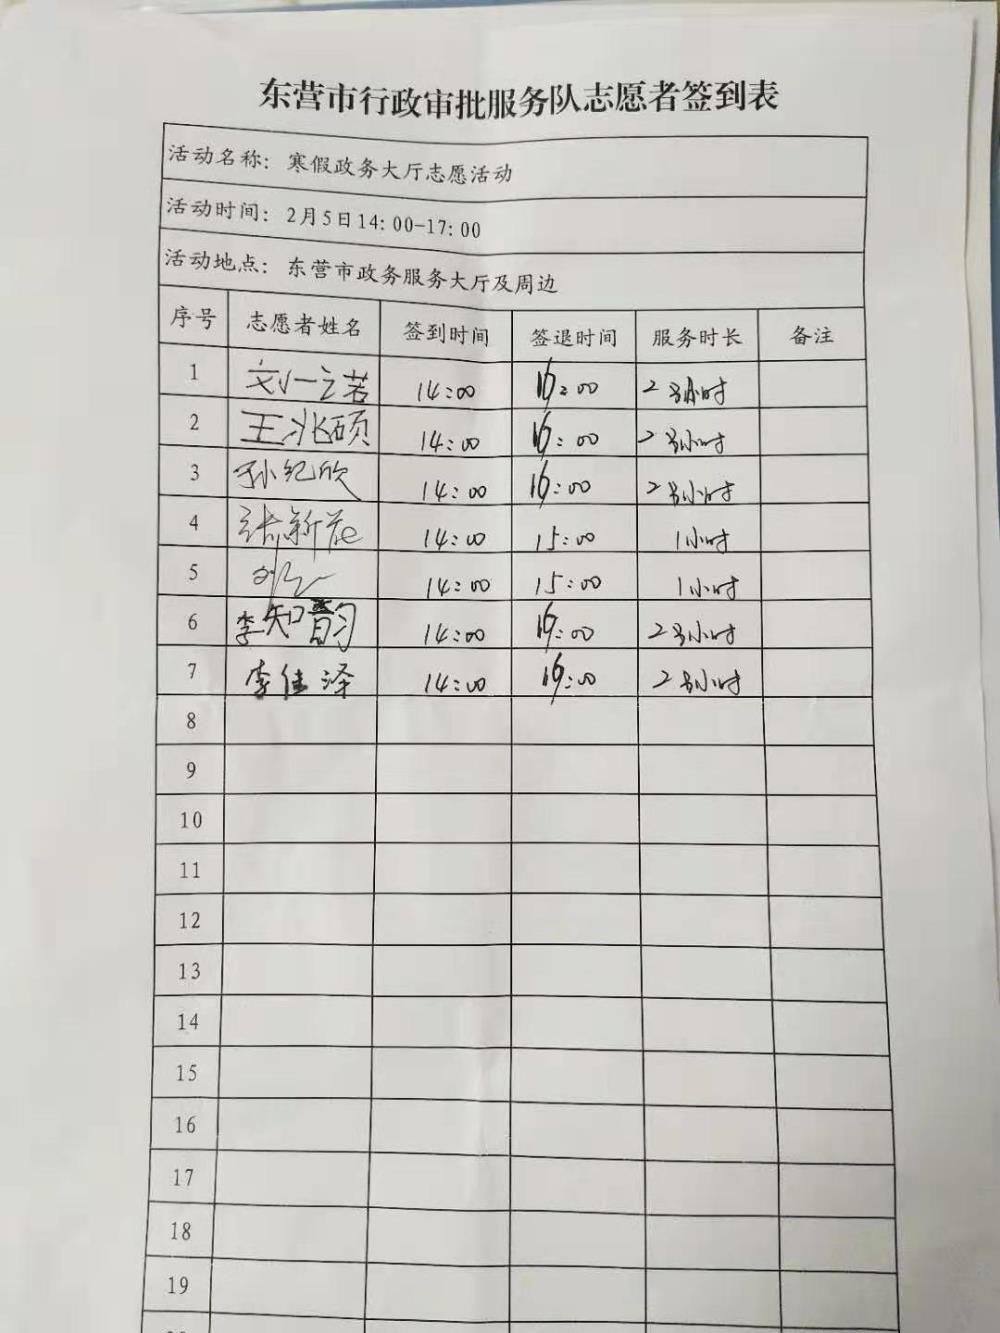 东营市行政审批服务队志愿者签到表
活动名称: 寒假政务大厅志愿活动
活动时间: 2月5日14:00-17:00
活动地点: 东营市政务服务大厅及周边
序号 志愿者姓名 签到时间 签退时间 服务时长 备注
1 刘一诺 14:00 16:00 2小时
2 王兆硕 14:00 16:00 2小时
3 孙纪欣 14:00 16:00 2小时
4 张新 14:00 15:00 1小时
5 14:00 15:00 1小时
6 李知 14:00 16:00 2小时
7 李佳泽 14:00 16:00 2小时
8
9
10
11
12
13
14
15
16
17
18
19